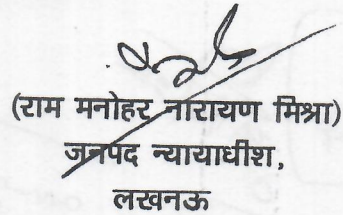 (राम मनोहर नारायण मिश्रा)
जनपद न्यायाधीश,
लखनऊ